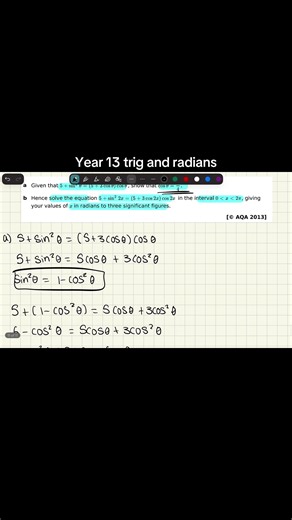 Year 13 trig and radians
a Given that 5 + sin² θ = (5 + 3 cos θ) cos θ, show that cos θ =
b Hence solve the equation 5 + sin² 2x = (5 + 3 cos 2x) cos 2x in the interval 0 < x < 2π, giving
your values of x in radians to three significant figures.
[© AQA 2013]
a) 5 + sin²θ = (5+3cosθ) cosθ
5 + sin²θ = 5cosθ + 3cos²θ
sin²θ = 1 - cos²θ
5 + (1 - cos²θ) = 5cosθ + 3cos²θ
- cos²θ = 5cosθ + 3cos²θ